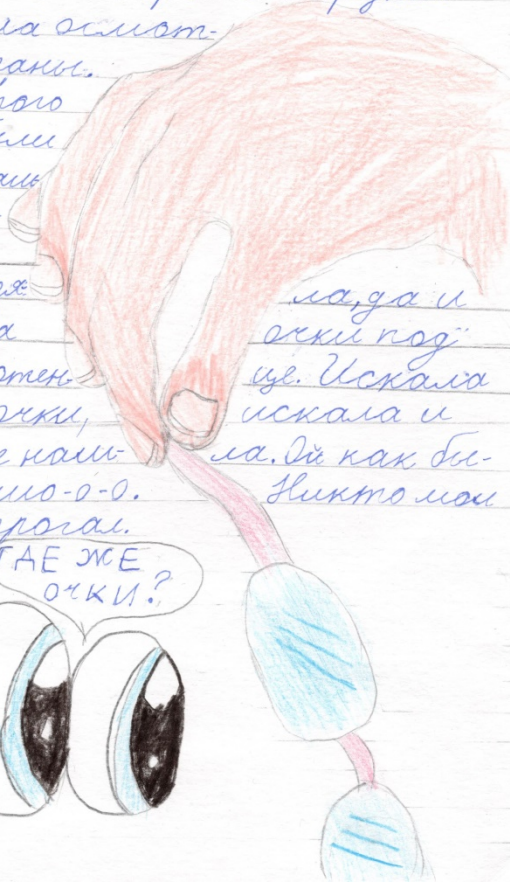 ла осмот-
аны.
ого
ли
аль
ла, да и
а очки под
отен- це. Искала
очки, искала и
е наш- ла. Ой как бы-
ло-о-о. Никто мои
трогал.
ГДЕ ЖЕ
ОЧКИ?